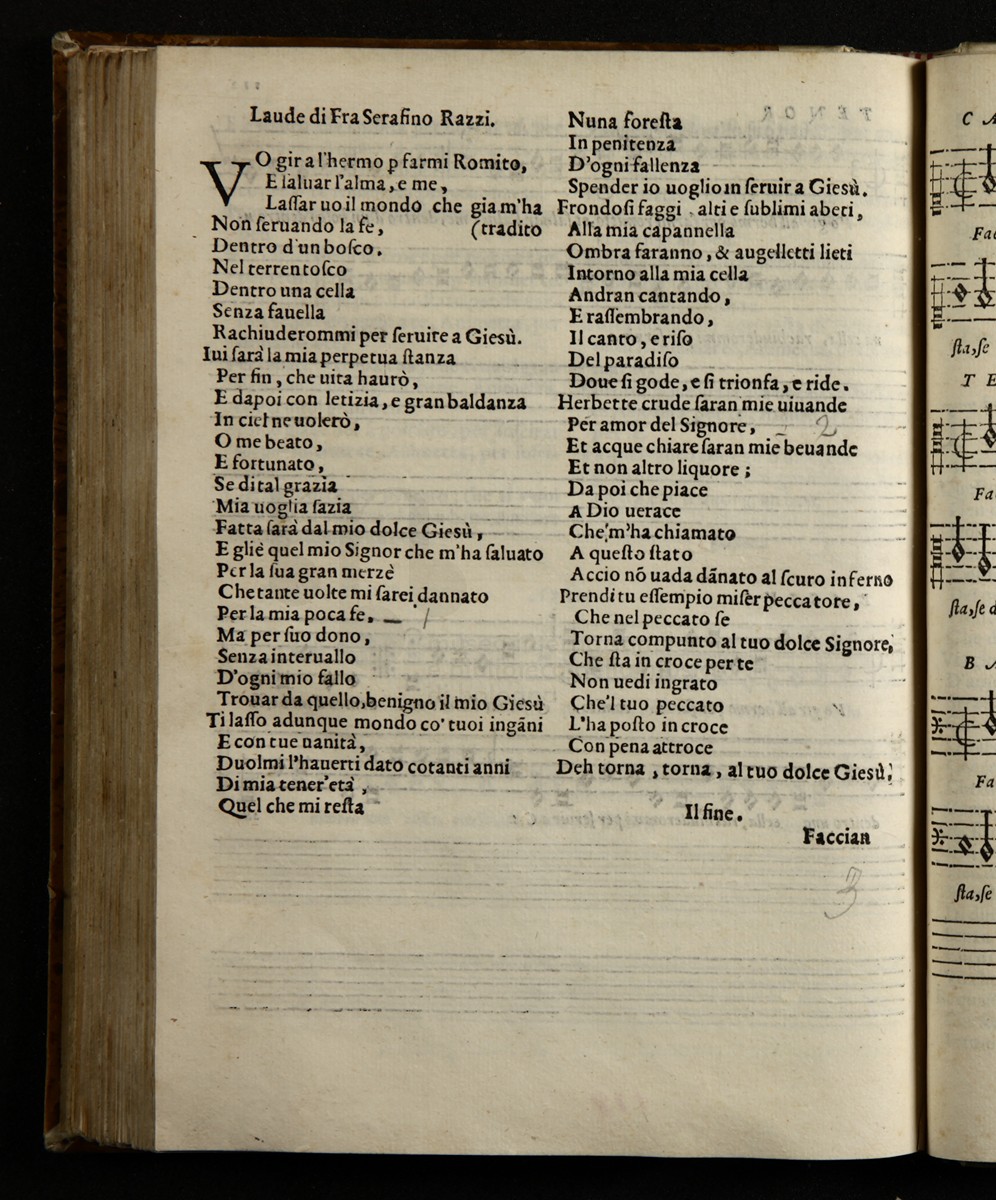 Laude di Fra Serafino Razzi.
VO gir a l'hermo p farmi Romito,
E ſaluar l'alma, e me,
Laſſar uo il mondo che gia m'ha
Non ſeruando la fe, (tradito
Dentro d'un boſco.
Nel terren toſco
Dentro una cella
Senza fauella
Rachiuderommi per ſeruire a Gieſù.
Iui ſarà la mia perpetua ſtanza
Per fin, che uita haurò,
E dapoi con letizia, e gran baldanza
In ciel ne uolerò,
O me beato,
E fortunato,
Se di tal grazia
Mia uoglia ſazia
Fatta ſarà dal mio dolce Gieſù,
E gliè quel mio Signor che m'ha ſaluato
Per la ſua gran merzè
Che tante uolte mi ſarei dannato
Per la mia poca fe, 1
Ma per ſuo dono,
Senza interuallo
D'ogni mio fallo
Trouar da quello, benigno il mio Gieſù
Ti laſſo adunque mondo co' tuoi ingãni
E con tue uanità,
Duolmi l'hauerti dato cotanti anni
Di mia tener'età,
Quel che mi reſta
Nuna foreſta
In penitenza
D'ogni fallenza
Spender io uoglio in ſeruir a Gieſù.
Frondoſi faggi alti e ſublimi abeti,
Alla mia capannella
Ombra faranno, & augelletti lieti
Intorno alla mia cella
Andran cantando,
E raſſembrando,
Il canto, e riſo
Del paradiſo
Doue ſi gode, e ſi trionfa, e ride.
Herbette crude ſaran mie uiuande
Per amor del Signore, 2
Et acque chiare ſaran mie beuande
Et non altro liquore;
Da poi che piace
A Dio uerace
Che m'ha chiamato
A queſto ſtato
Accio nõ uada dãnato al ſcuro inferno
Prendi tu eſſempio miſer peccatore,
Che nel peccato ſe
Torna compunto al tuo dolce Signore,
Che ſta in croce per te
Non uedi ingrato
Che'l tuo peccato
L'ha poſto in croce
Con pena attroce
Deh torna, torna, al tuo dolce Gieſù,
Il fine.
Faccian
3
C
Fac
ſta, ſe
T E
Fa
ſta, ſe d
B
Fa
ſta, ſe